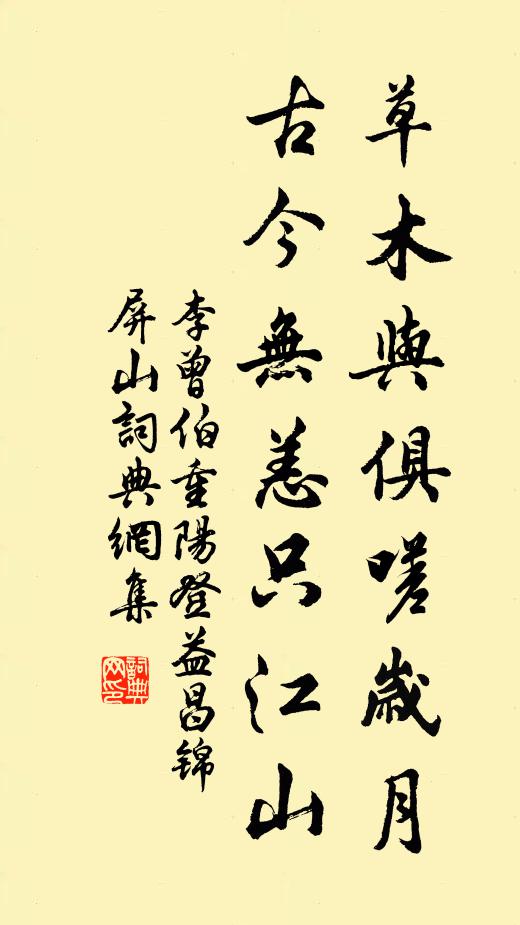 草木與俱嗟歲月
古今無恙只江山
李曾伯重陽登益昌錦
屏山詞典網集
詞典網印